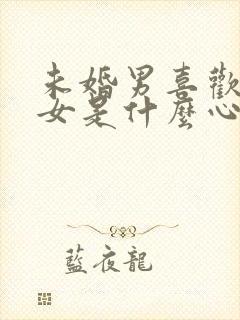 未婚男喜歡
女是什麼心
藍夜龍